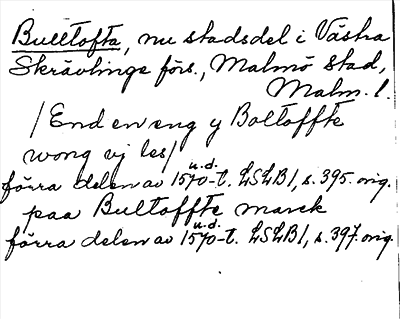 Bulltofta, nu stadsdel i Västra
Skrävlinge förs., Malmö stad,
Malm. l.
/End en eng y Boltoffte
wong vj les/
förra delen av 1570-t. u.d. LSLB1, s. 395. orig.
paa Bultoffte marck
förra delen av 1570-t. u.d. LSLB1, s. 397. orig.